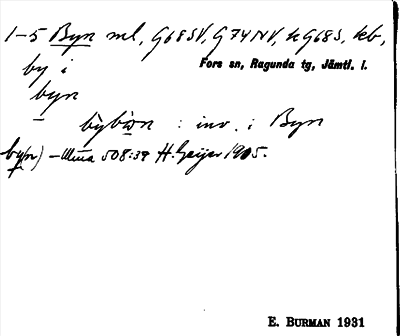 1-5 Byn ml, G68SV, G74NV, kG68S, kb,
Fors sn, Ragunda tg, Jämtl. l.
by i
byn
: inv. i Byn
by(n) – 508:39 H. Geijer 1905.
E. BURMAN 1931